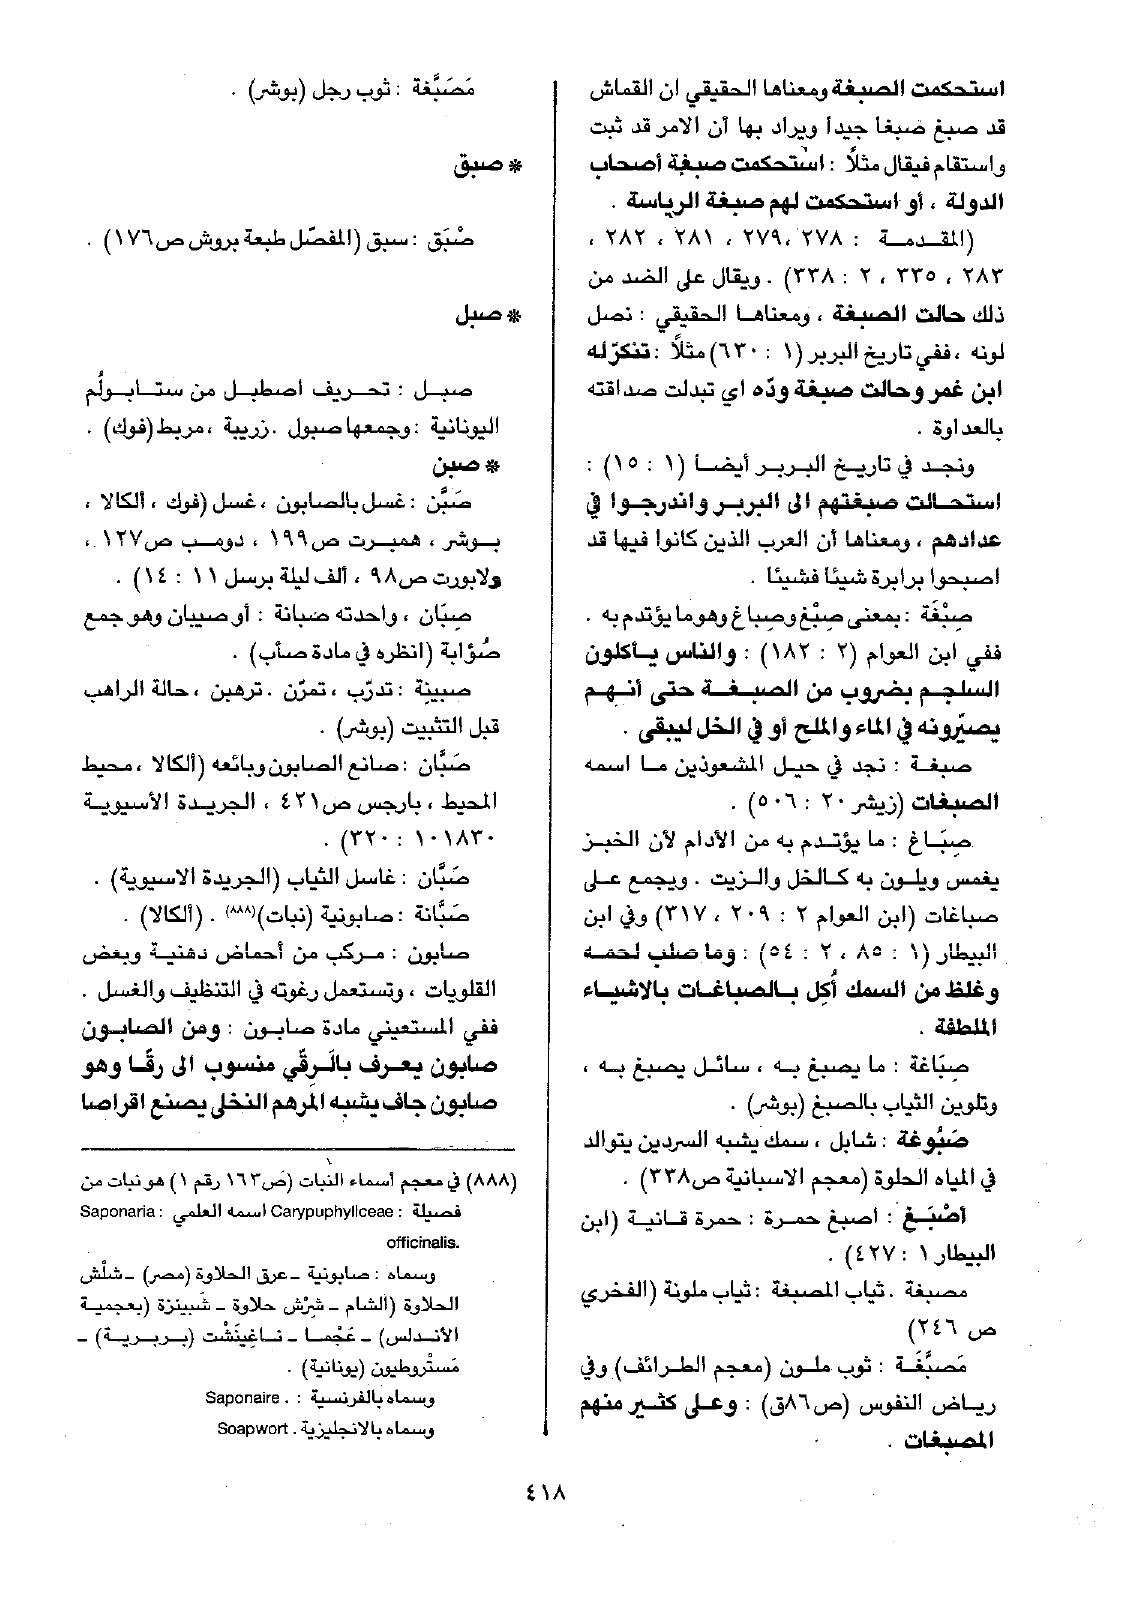 استحكمت الصبغة ومعناها الحقيقي ان القماش
قد صبغ صبغا جيداً ويراد بها أن الامر قد ثبت
واستقام فيقال مثلاً : استحكمت صبغة أصحاب
الدولة ، أو استحكمت لهم صبغة الرياسة .
(المقدمة : ٢٧٨ ،٢٧٩ ، ٢٨١ ، ٢٨٢ ،
٢٨٣ ، ٣٣٥ ، ٢ : ٣٣٨) . ويقال على الضد من
ذلك حالت الصبغة ، ومعناها الحقيقي : نصل
لونه ، ففي تاريخ البربر (١ : ٦٣٠) مثلاً : تنكرّ له
ابن غمر وحالت صبغة ودّه اي تبدلت صداقته
بالعداوة .
ونجد في تاريخ البربر أيضاً (١ : ١٥) :
استحالت صبغتهم الى البربر واندرجوا في
عدادهم ، ومعناها أن العرب الذين كانوا فيها قد
اصبحوا برابرة شيئا فشيئا .
صِبْغَة : بمعنى صِبْغ وصِباغ وهو ما يؤتدم به .
ففي ابن العوام (٢ : ١٨٢) : والناس يأكلون
السلجم بضروب من الصبغة حتى أنهم
يصيّرونه في الماء والملح أو في الخل ليبقى .
صبغة : نجد في حيل المشعوذين ما اسمه
الصبغات (زيشر ٢٠ : ٥٠٦) .
صِبَاغ : ما يؤتدم به من الأدام لأن الخبز
يغمس ويلون به كالخل والزيت . ويجمع على
صباغات (ابن العوام ٢ : ٢٠٩ ، ٣١٧) وفي ابن
البيطار (١ : ٨٥ ، ٢ : ٥٤) : وما صلب لحمه
وغلظ من السمك أُكل بالصباغات بالاشياء
الملطفة .
صِبَاغة : ما يصبغ به ، سائل يصبغ به ،
وتلوين الثياب بالصبغ (بوشر) .
صَبُّوغة : شابل ، سمك يشبه السردين يتوالد
في المياه الحلوة (معجم الاسبانية ص٣٣٨) .
أصْبَغ : أصبغ حمرة : حمرة قانية (ابن
البيطار ١ : ٤٢٧) .
مصبغة . ثياب المصبغة : ثياب ملونة (الفخري
ص ٢٤٦)
مُصَبَّغَة : ثوب ملون (معجم الطرائف) وفي
رياض النفوس (ص٨٦ق) : وعلى كثير منهم
المصبغات .
مَصَبَّغة : ثوب رجل (بوشر) .
* صبق
صْبَق : سبق (المفصّل طبعة بروش ص١٧٦) .
* صبل
صبل : تحريف اصطبل من ستابولُم
اليونانية : وجمعها صبول . زريبة ، مربط (فوك) .
* صبن
صَبَّن : غسل بالصابون ، غسل (فوك ، ألكالا ،
بوشر ، همبرت ص١٩٩ ، دومب ص١٢٧ ،
ولابورت ص٩٨ ، ألف ليلة برسل ١١ : ١٤) .
صِبَان ، واحدته صبانة : أو صيبان وهو جمع
صُؤابة (انظره في مادة صأب) .
صبينة : تدرّب ، تمرّن . ترهبن ، حالة الراهب
قبل التثبيت (بوشر) .
صَبَّان : صانع الصابون وبائعه (ألكالا ، محيط
المحيط ، بارجس ص٤٢١ ، الجريدة الأسيوية
١٠١٨٣٠ : ٣٢٠) .
صَبَّان : غاسل الثياب (الجريدة الاسيوية) .
صَبَّانة : صابونية (نبات)(٨٨٨) . (ألكالا) .
صابون : مركب من أحماض دهنية وبعض
القلويات ، وتستعمل رغوته في التنظيف والغسل .
ففي المستعيني مادة صابون : ومن الصابون
صابون يعرف بالَرقّي منسوب الى رقّا وهو
صابون جاف يشبه المرهم النخلي يصنع اقراصا
(٨٨٨) في معجم أسماء النبات (ص١٦٣ رقم ١) هو نبات من
فصيلة : Carypuphyliceae اسمه العلمي : Saponaria
officinalis.
وسماه : صابونية – عرق الحلاوة (مصر) – شلْش
الحلاوة (الشام – شرْش حلاوة – شبينزة (بعجمية
الأندلس) – غجما – تاغِينَشْت (بربرية) –
مَسْتَروطيون (يونانية) .
وسماه بالفرنسية : . Saponaire
وسماه بالانجليزية . Soapwort
٤١٨